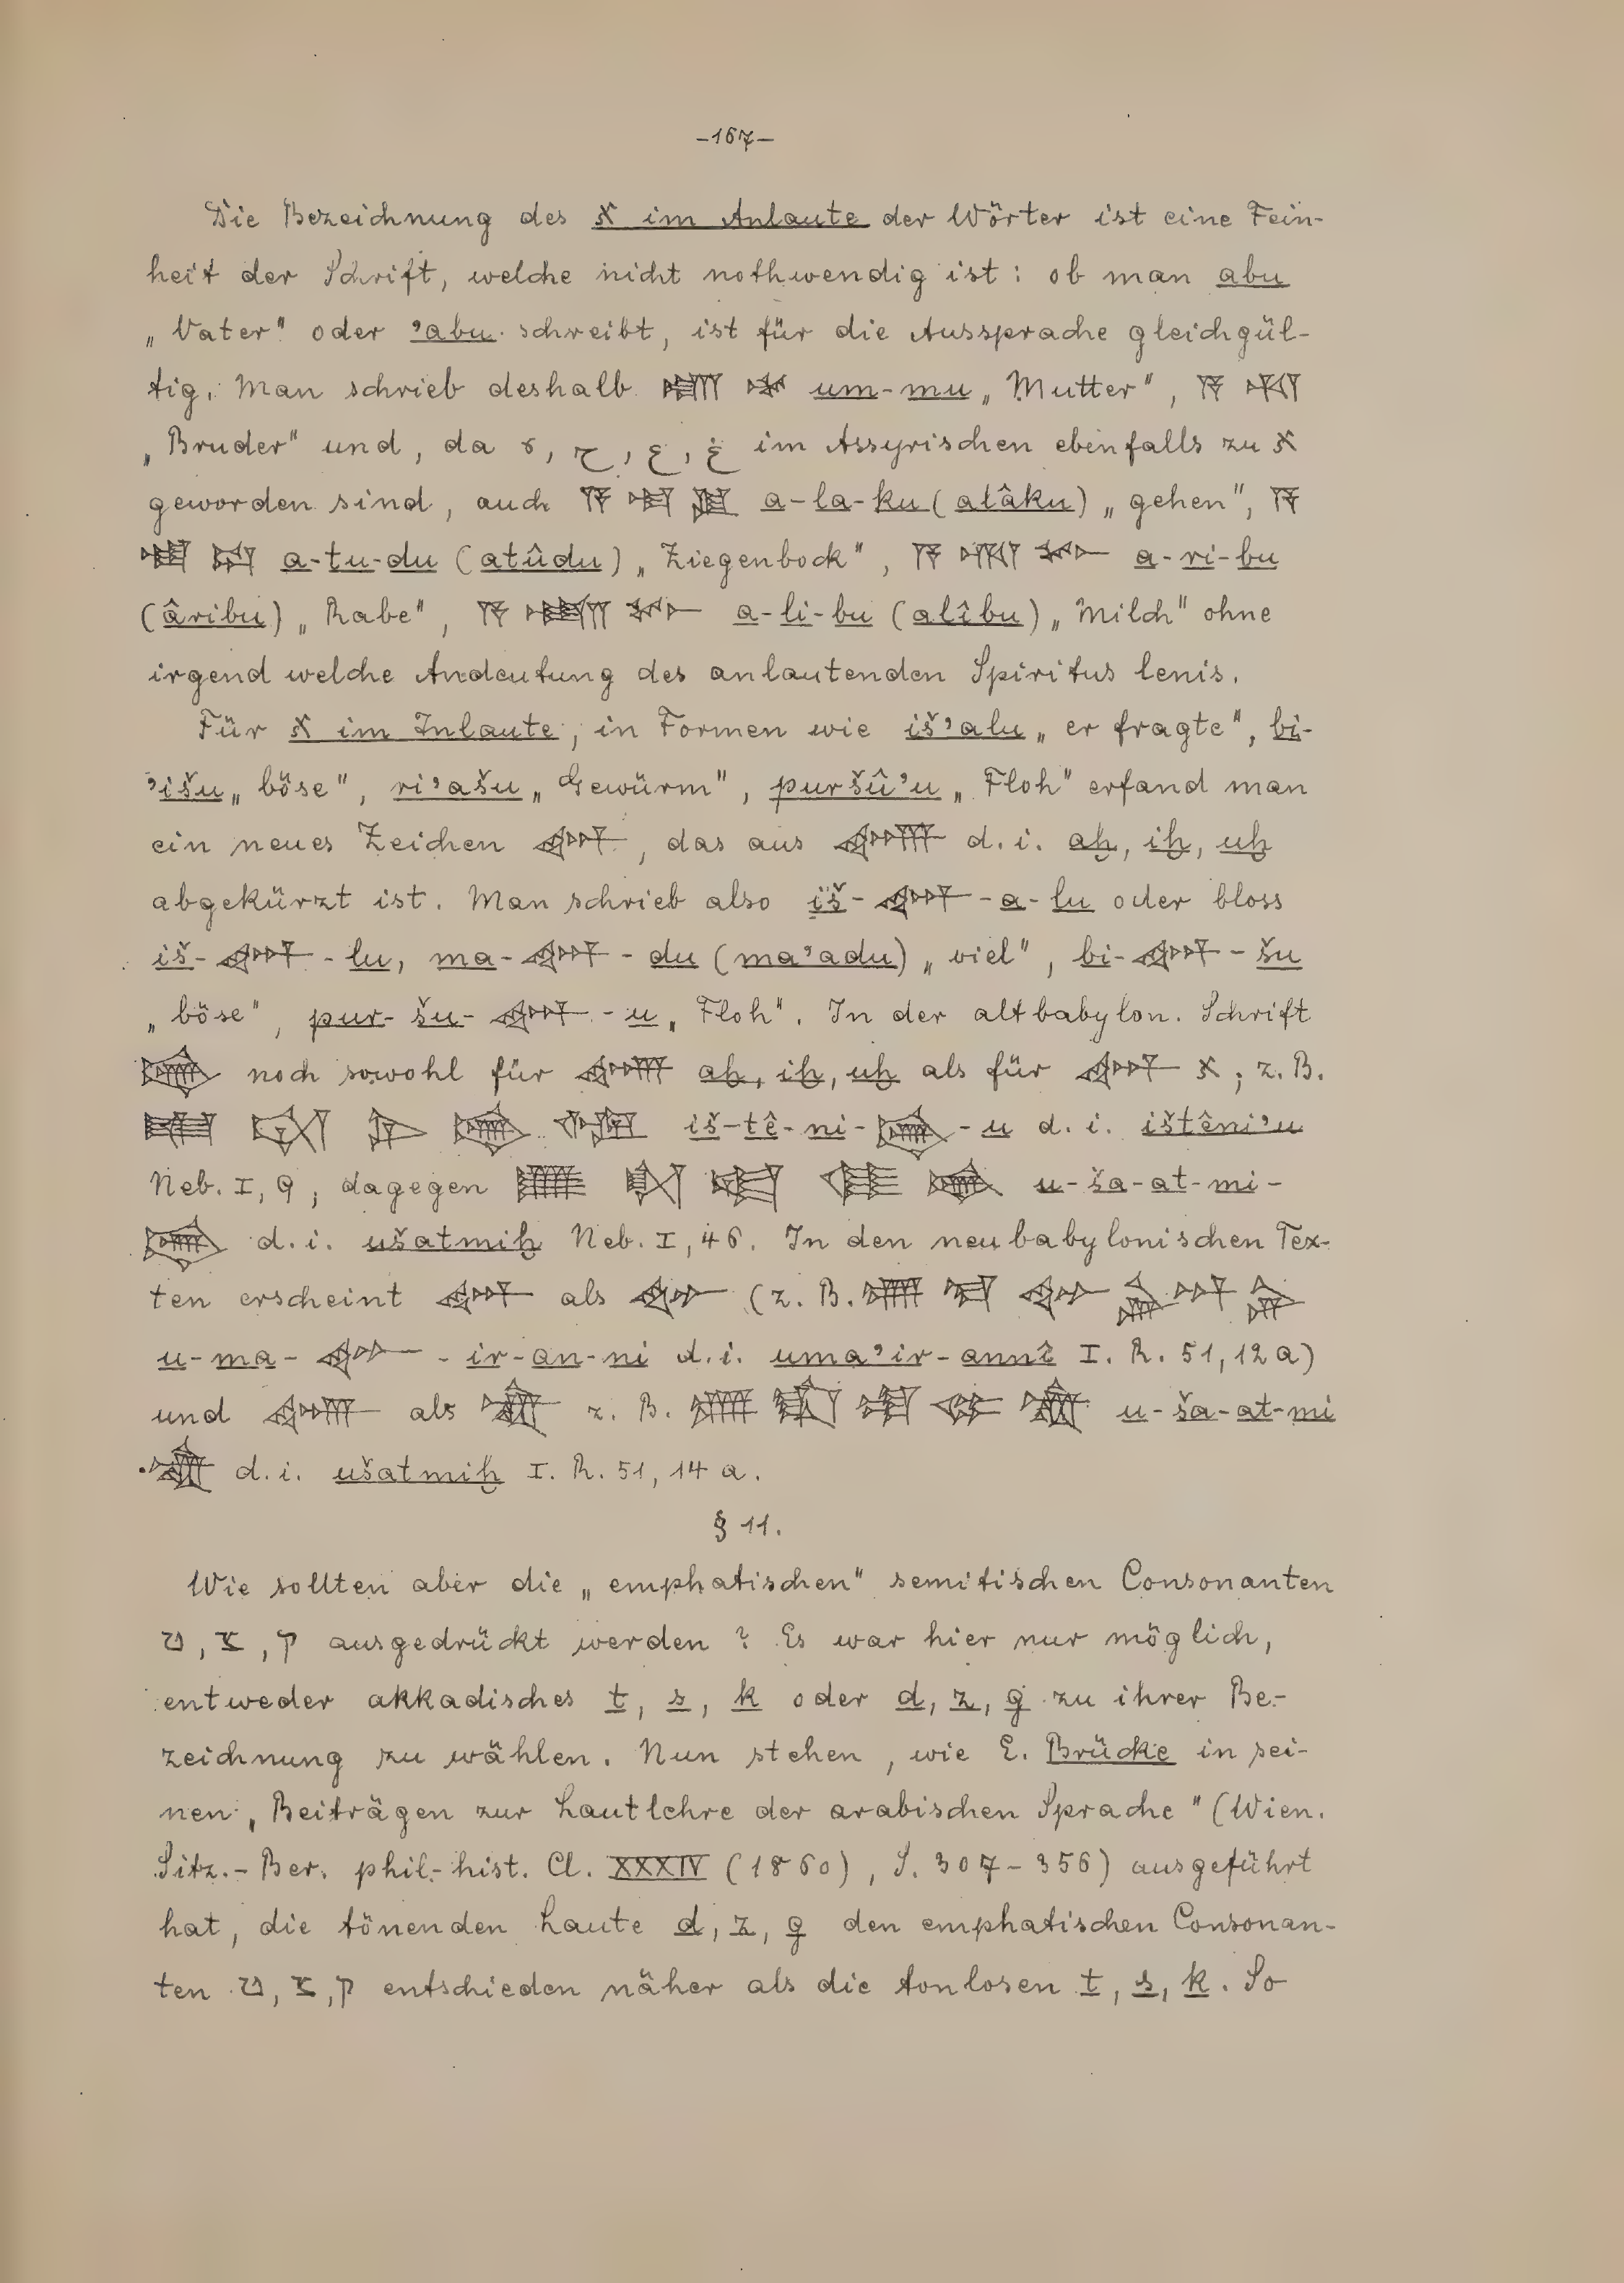 -167-
Die Bezeichnung des א im Anlaute der Wörter ist eine Fein-
heit der Schrift, welche nicht nothwendig ist: ob man abu
„Vater" oder ʾabu schreibt, ist für die Aussprache gleichgül-
tig. Man schrieb deshalb 𒌝 𒈬 um-mu „Mutter", 𒀀 𒄷
„Bruder" und, da ه, ح, ع, غ im Assyrischen ebenfalls zu א
geworden sind, auch 𒀀 𒆷 𒆪 a-la-ku (alâku) „gehen", 𒀀
𒌅 𒁺 a-tu-du (atûdu) „Ziegenbock", 𒀀 𒊑 𒁍 a-ri-bu
(âribu) „Rabe", 𒀀 𒇷 𒁍 a-li-bu (alîbu) „Milch" ohne
irgend welche Andeutung des anlautenden Spiritus lenis.
Für א im Inlaute, in Formen wie išʾalu „er fragte", bi-
ʾišu „böse", riʾašu „Gewürm", puršûʾu „Floh" erfand man
ein neues Zeichen 𒀪, das aus 𒄴 d. i. aḫ, iḫ, uḫ
abgekürzt ist. Man schrieb also iš-𒀪-a-lu oder bloss
iš-𒀪-lu, ma-𒀪-du (maʾadu) „viel", bi-𒀪-šu
„böse", pur-šu-𒀪-u „Floh". In der altbabylon. Schrift
𒄴 noch sowohl für 𒄴 aḫ, iḫ, uḫ als für 𒀪 א; z. B.
𒅖 𒋼 𒉌 𒄴 𒅇 iš-tê-ni-𒄴-u d. i. ištêniʾu
Neb. I, 9, dagegen 𒌑 𒊭 𒀜 𒈪 𒄴 u-ša-at-mi-
𒄴 d. i. ušatmiḫ Neb. I, 46. In den neubabylonischen Tex-
ten erscheint 𒀪 als 𒀪 (z. B. 𒌑 𒈠 𒀪 𒅕 𒀭 𒉌
u-ma-𒀪-ir-an-ni d. i. umaʾir-annî I. R. 51, 12 a)
und 𒄴 als 𒄴 z. B. 𒌑 𒊭 𒀜 𒈪 𒄴 u-ša-at-mi
-𒄴 d. i. ušatmiḫ I. R. 51, 14 a.
§ 11.
Wie sollten aber die „emphatischen" semitischen Consonanten
ט, צ, ק ausgedrückt werden? Es war hier nur möglich,
entweder akkadisches t, s, k oder d, z, g zu ihrer Be-
zeichnung zu wählen. Nun stehen, wie E. Brücke in sei-
nen „Beiträgen zur Lautlehre der arabischen Sprache" (Wien.
Sitz.-Ber. phil.-hist. Cl. XXXIV (1860), S. 307-356) ausgeführt
hat, die tönenden Laute d, z, g den emphatischen Consonan-
ten ט, צ, ק entschieden näher als die tonlosen t, s, k. So